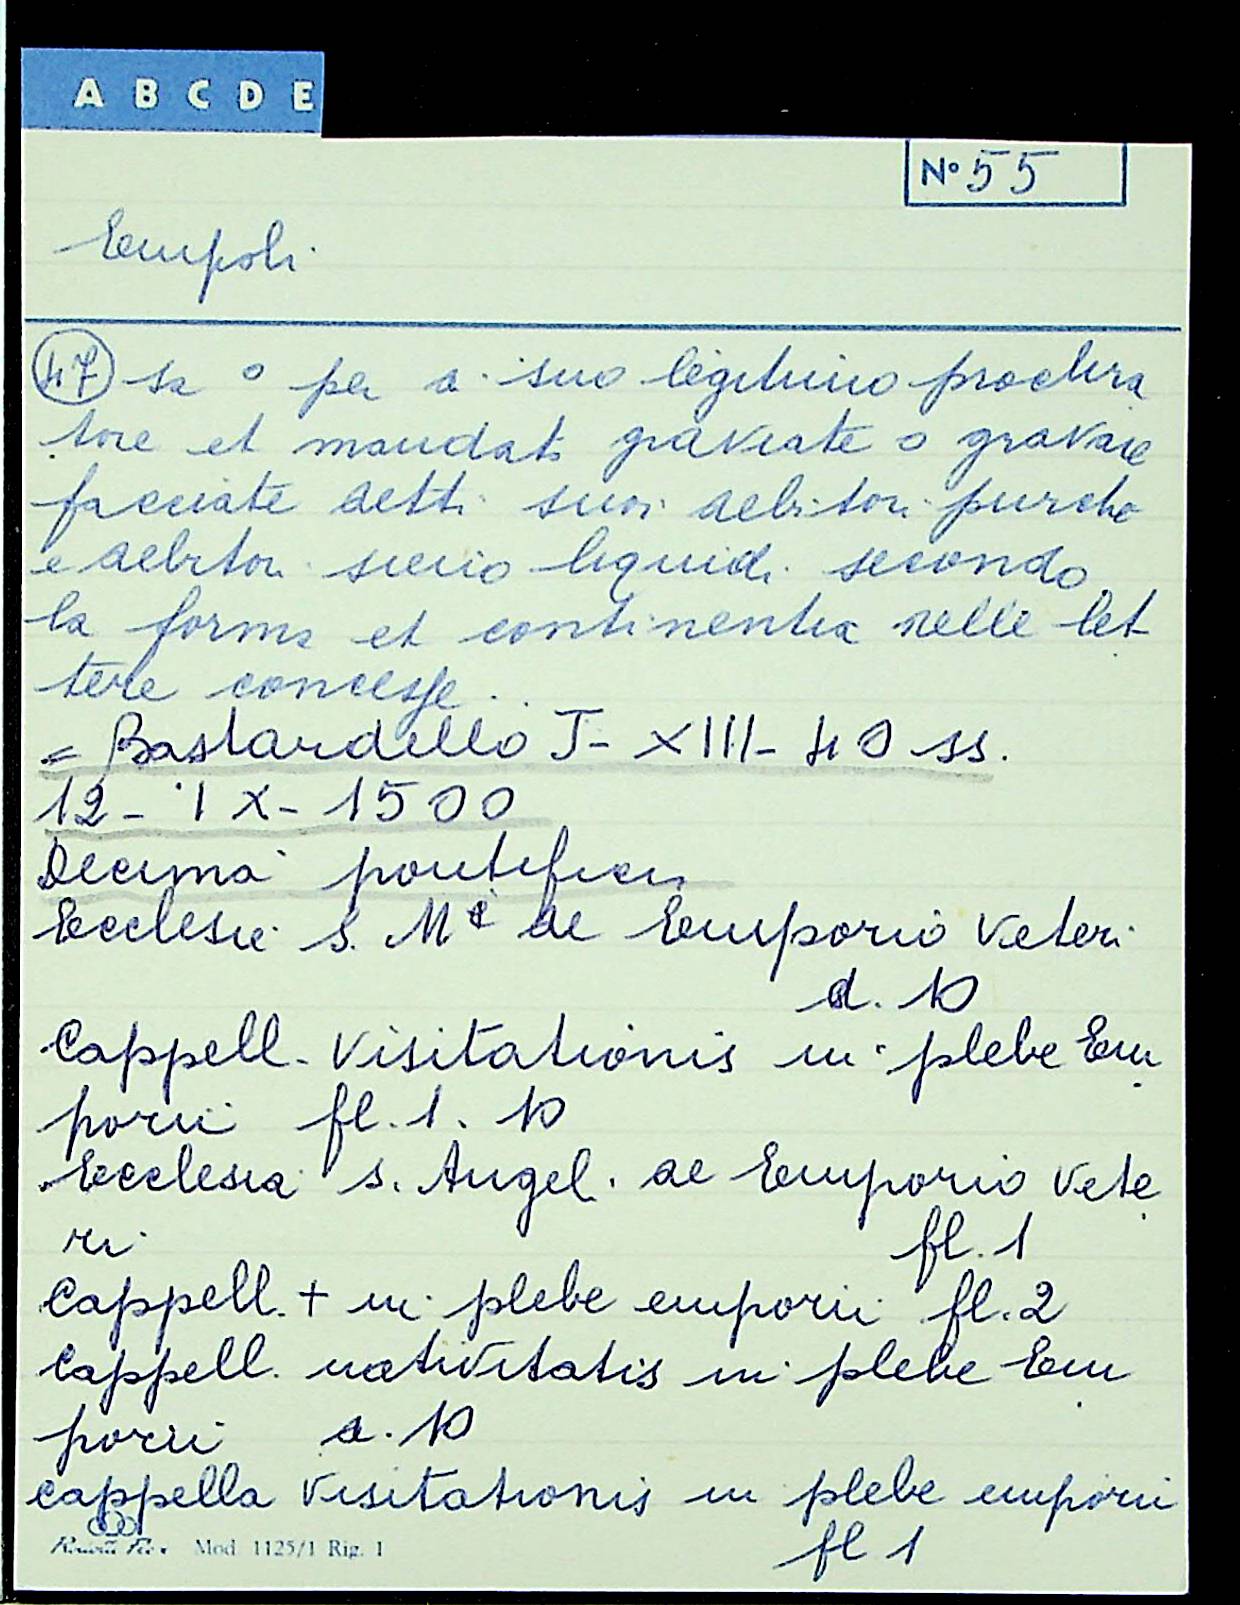 A B C D E
No 55
Empoli
47 sa o per a suo legitimo prochura
tore et mandato graviate o gravare
facciate detti suoi debitori purche
e debitori sieno liquidi secondo
la forma et continentia nelle let
tere concesse.
= Bastardello J- XIII- 40 ss.
12 - IX - 1500
Decima pontifici
Ecclesie S. Me de Emporio Veteri
d. 10
Cappell. Visitationis in plebe Em
porii fl. 1. 10
Ecclesia s. Angel. de Emporio Vete
ri fl. 1
Cappell. + in plebe emporii fl. 2
Cappell. nativitatis in plebe Em
porii d. 10
cappella Visitationis in plebe emporii
fl 1
Mod. 1125/1 Rig. 1